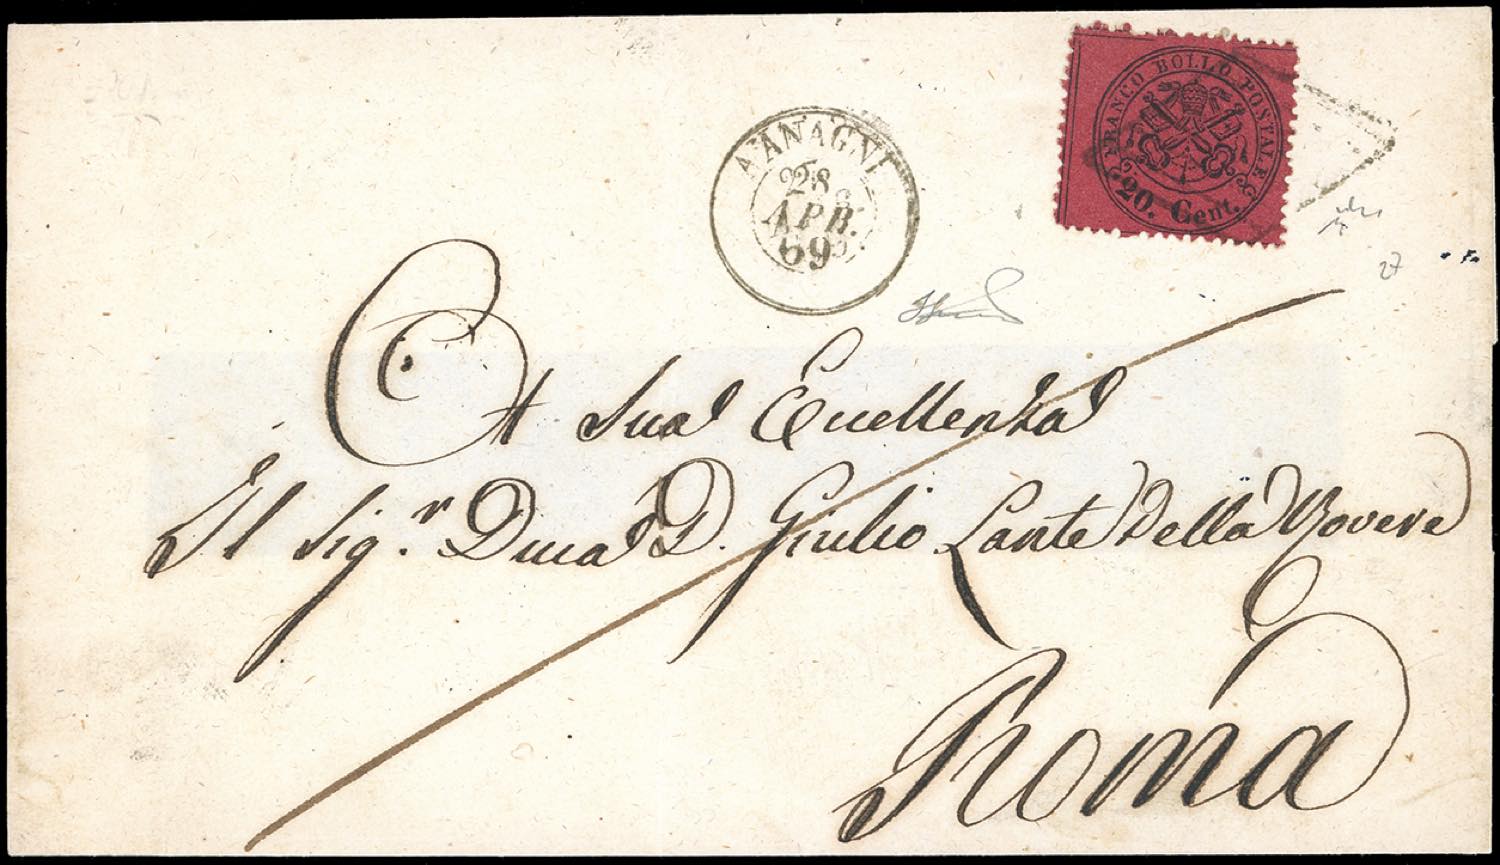 FRANCO BOLLO POSTALE
20. Cent.
ANAGNI
28
APR.
69
A Sua Eccellenza
Il Sig.r Duca D. Giulio Lante Della Rovere
Roma
27